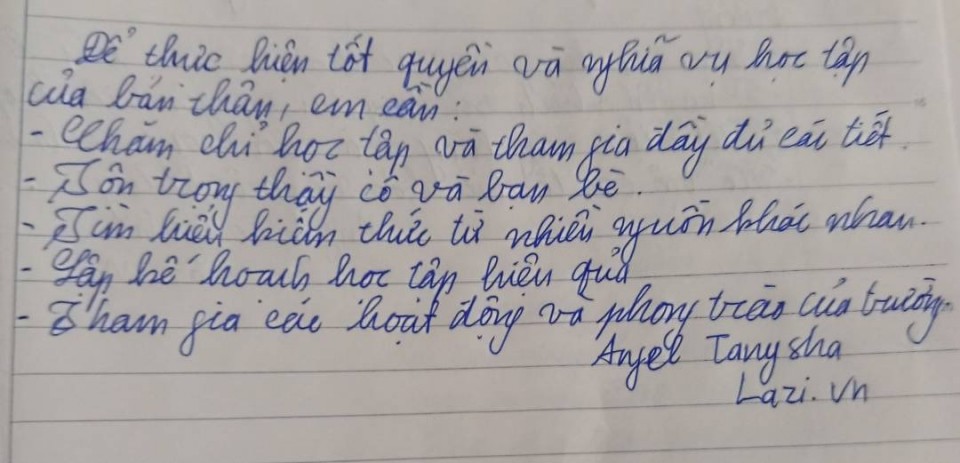 Để thực hiện tốt quyền và nghĩa vụ học tập
của bản thân, em cần:
- Chăm chỉ học tập và tham gia đầy đủ các tiết.
- Tôn trọng thầy cô và bạn bè.
- Tìm hiểu kiến thức từ nhiều nguồn khác nhau.
- Lập kế hoạch học tập hiệu quả
- Tham gia các hoạt động và phong trào của trường.
Angel Tanysha
Lazi.vn